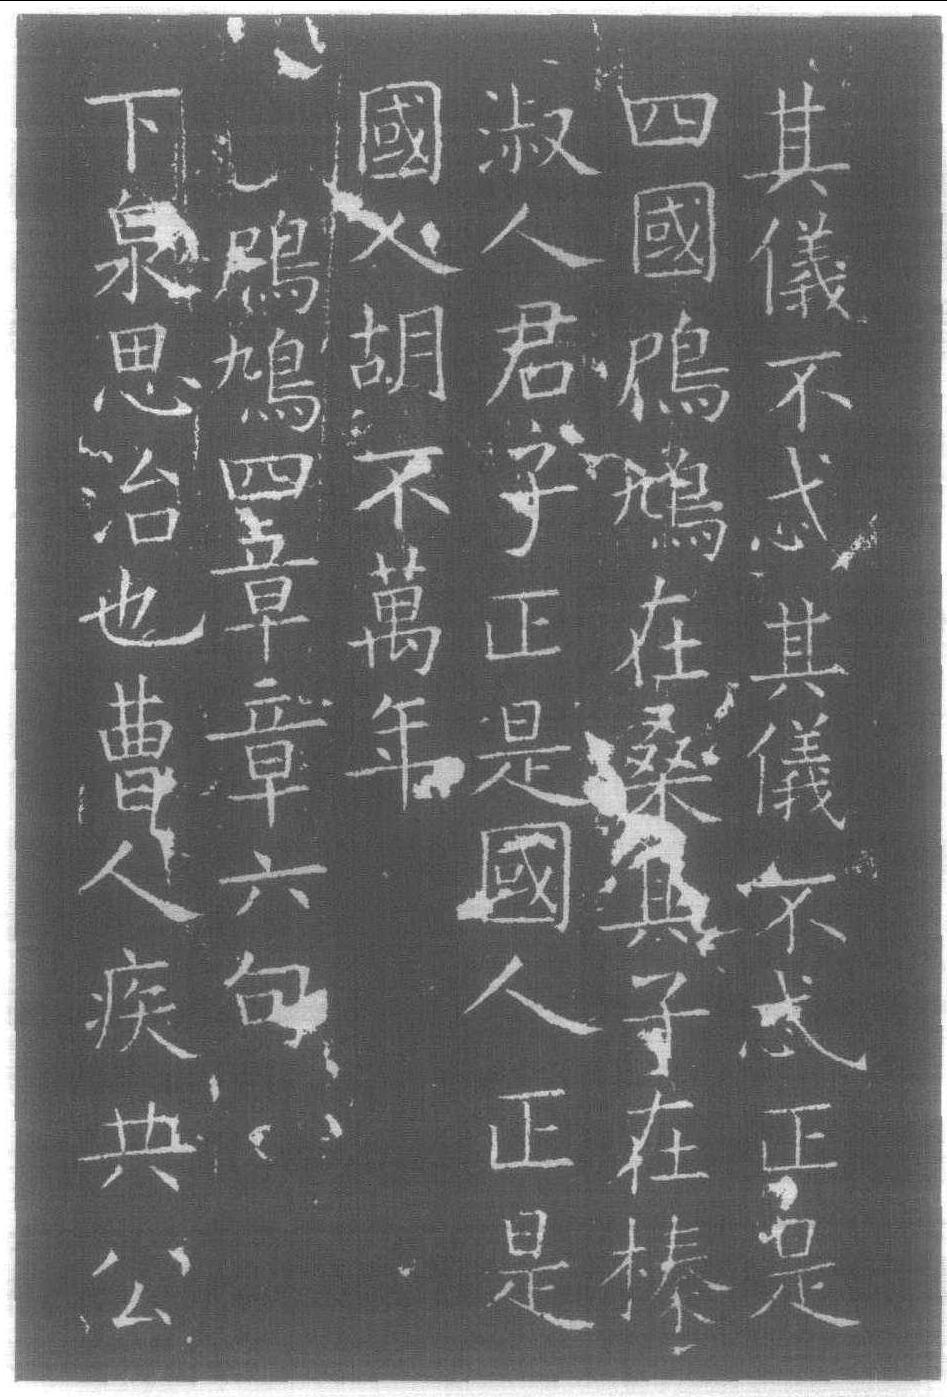 其儀不忒其儀不忒正是
四國鳲鳩在桑其子在榛
淑人君子正是國人正是
國人胡不萬年
鳲鳩四章章六句
下泉思治也曹人疾共公